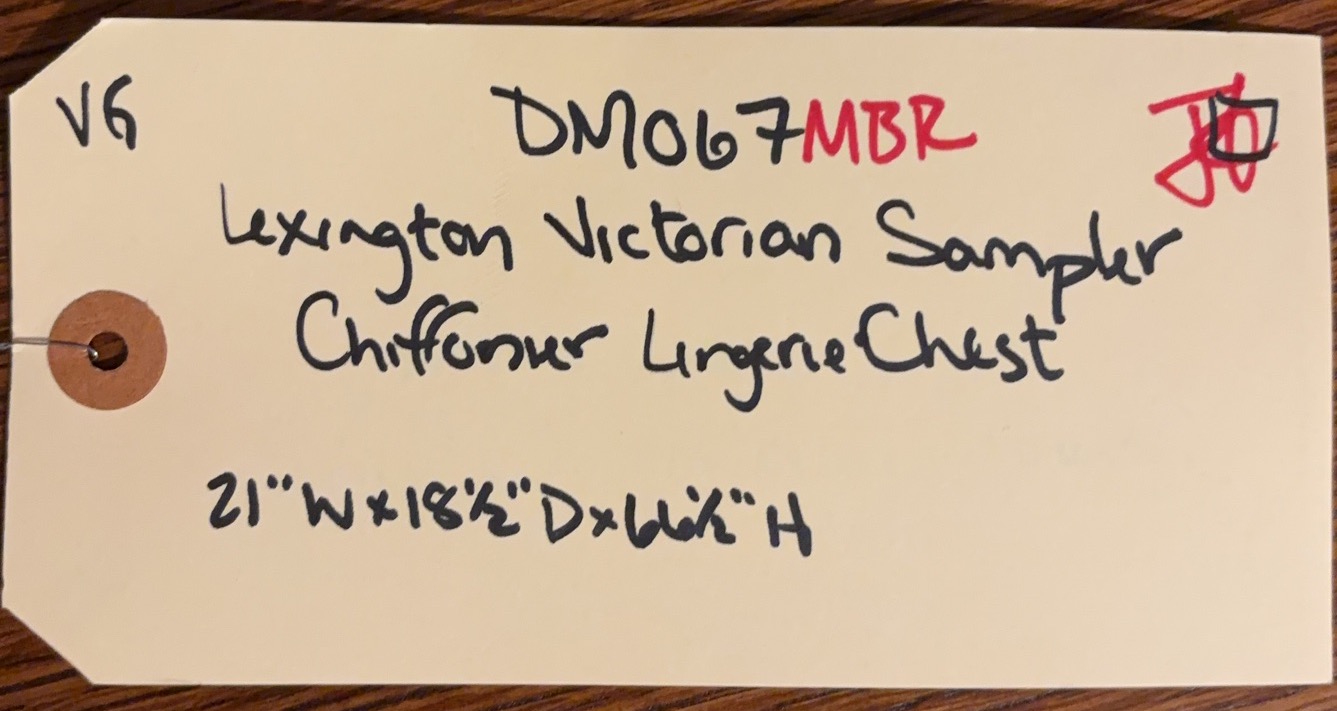 VG
DM067MBR
Lexington Victorian Sampler
Chiffonier Lingerie Chest
21"W x 18½"D x 66½"H